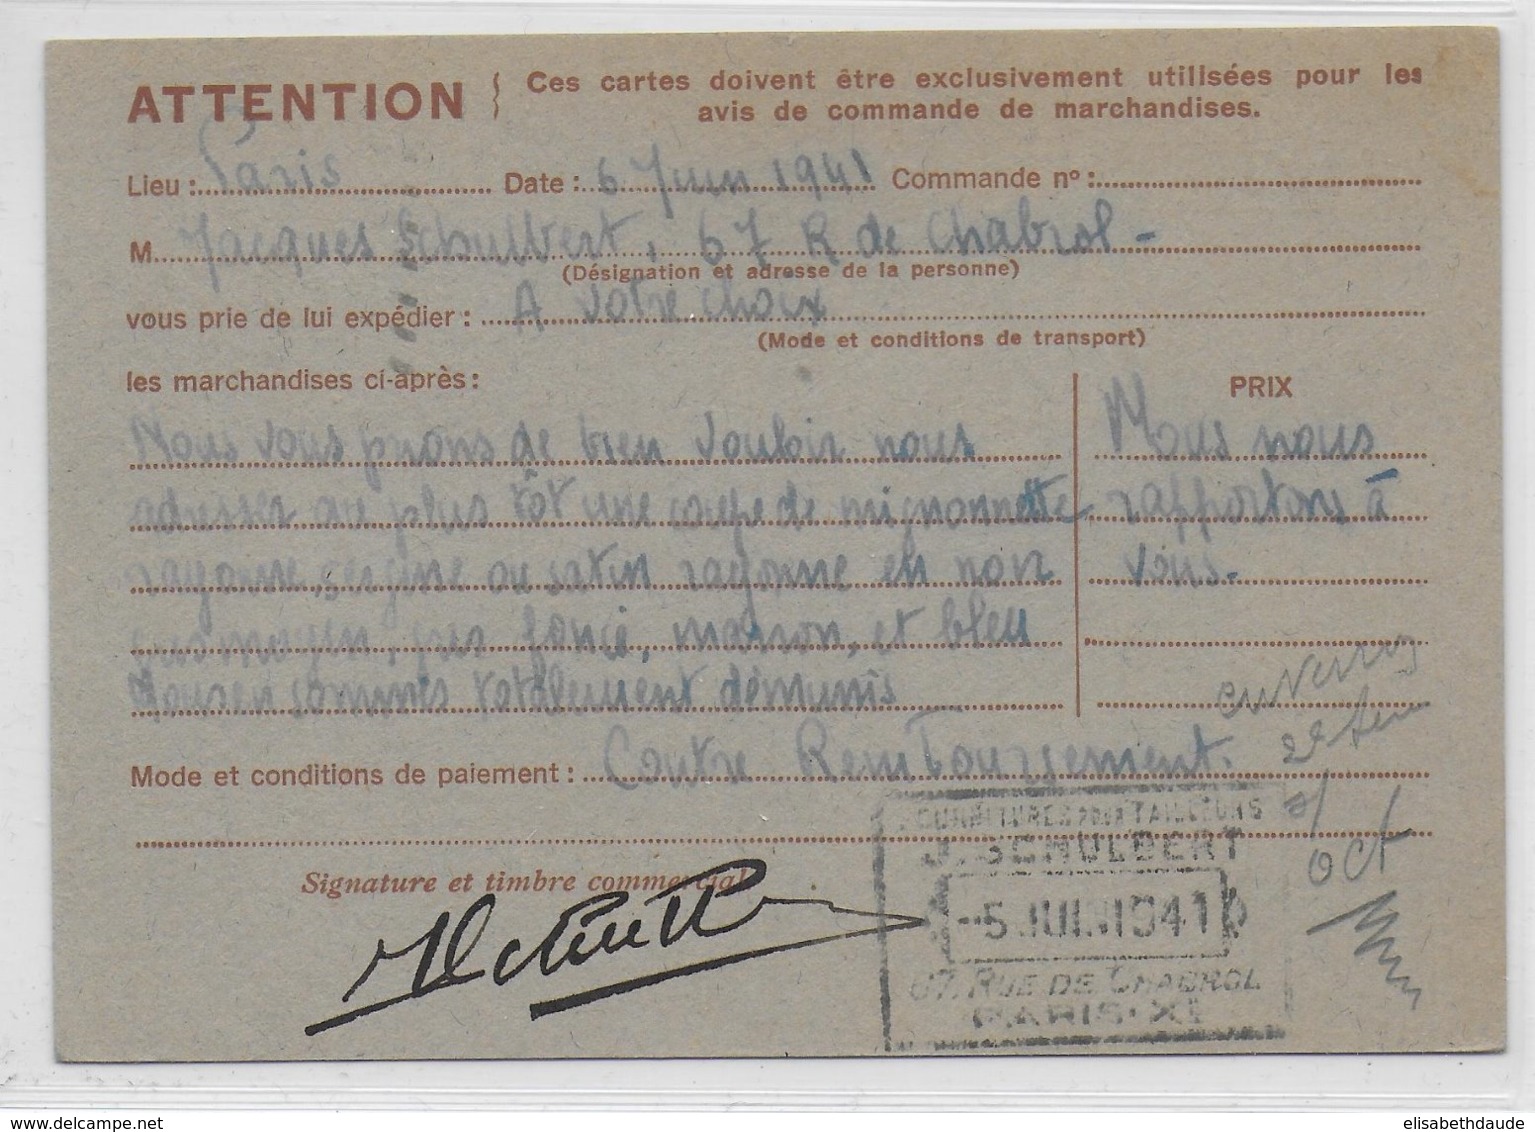 ATTENTION
Ces cartes doivent être exclusivement utilisées pour les
avis de commande de marchandises.
Lieu : Paris Date : 6 Juin 1941 Commande nº :
M. Jacques Schulbert, 67 R de Chabrol -
(Désignation et adresse de la personne)
vous prie de lui expédier : A votre choix
(Mode et conditions de transport)
les marchandises ci-après : PRIX
Nous vous prions de bien vouloir nous
adresser au plus tôt une coupe de mignonnette
rayonne, sergine ou satin rayonne en noir
gris moyen, gris foncé, marron, et bleu
Nous en sommes totalement démunis
Nous nous
rapportons à
vous.-
Mode et conditions de paiement : Contre Remboursement.
Signature et timbre commercial
FOURNITURES POUR TAILLEURS
J. SCHULBERT
-5 JUIN 1941
67, RUE DE CHABROL
PARIS-X
oct
elisabethdaude